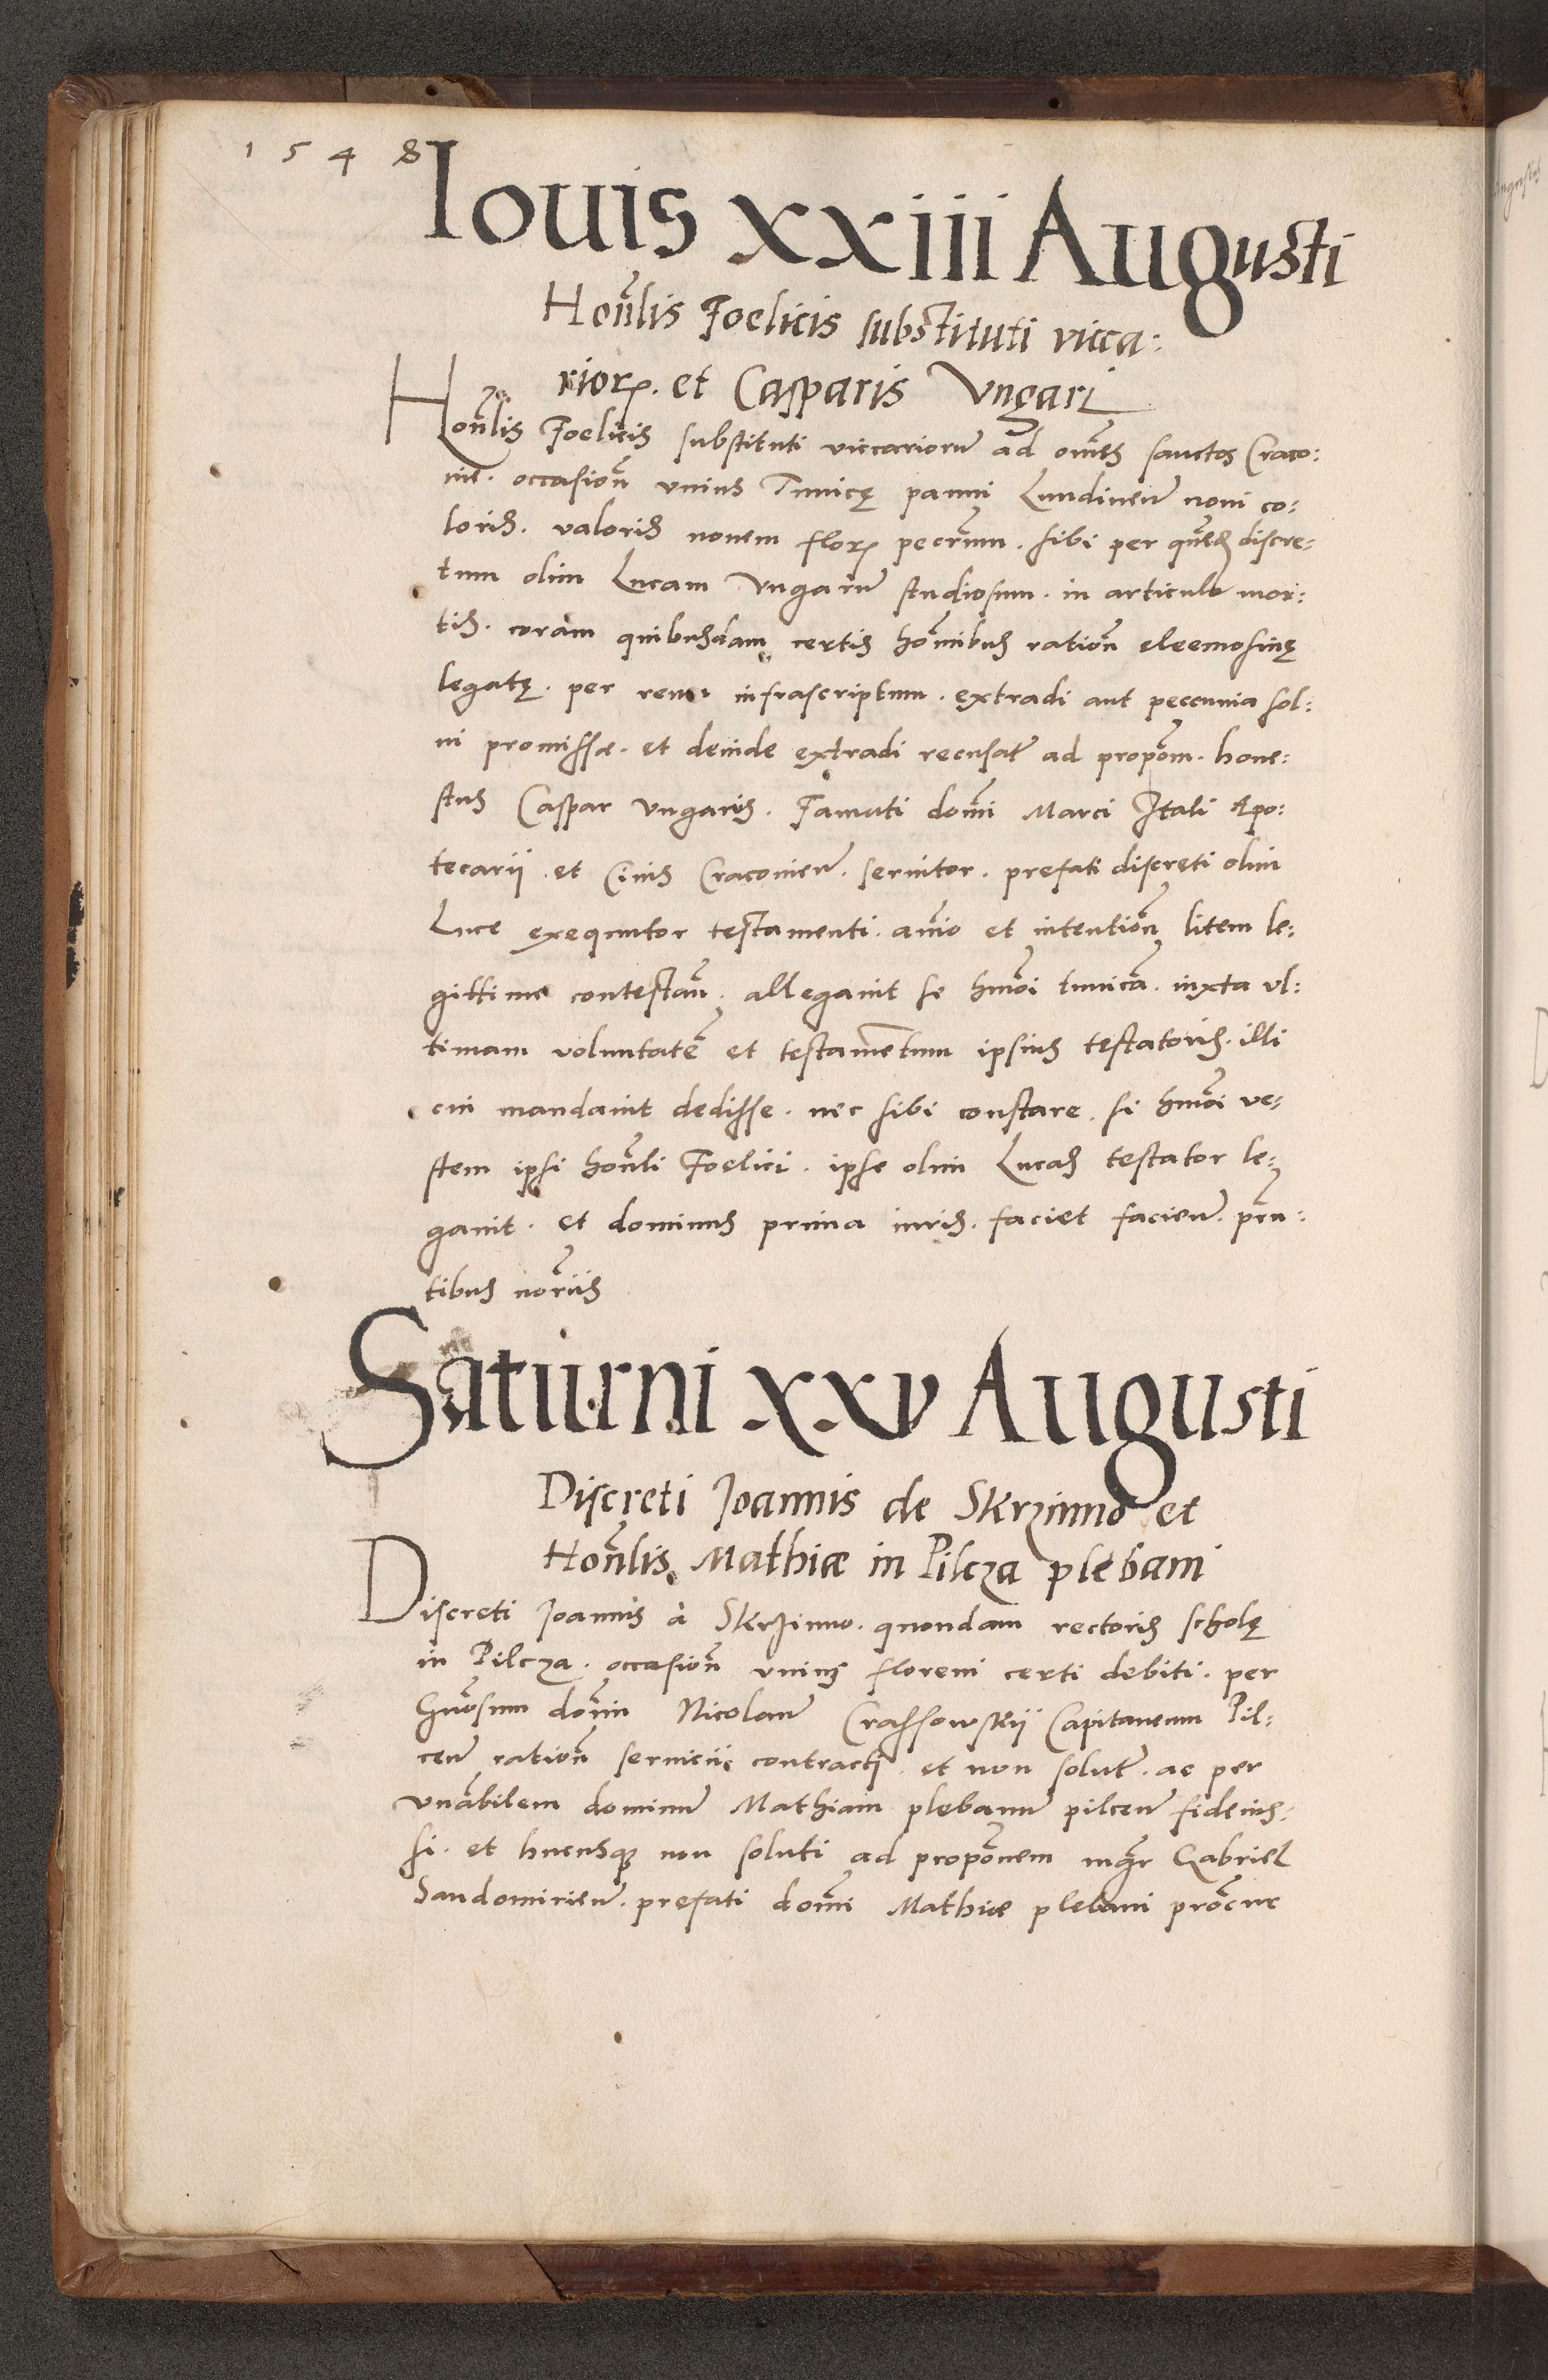 1548
Iouis xxiii Augusti
Hon̄lis Foelicis substituti vicca:
rior. et Casparis Vngari
Hon̄lis Foelicis substituti viccariorū ad om̄es sanctos Craco:
uie. occasion̄ vnius Tunicę panni Lundinen̄ noui co:
loris. valoris nouem flor pecc̄rum. sibi per quēdā discre:
tum olim Lucam Vngarū studiosum. in articulo mor:
tis. coram quibusdam certis hom̄nibus ration̄ eleemosinę
legatę. per reum infrascriptum. extradi aut peccunia sol:
ui promissæ. et deinde extradi recusatę ad propōm. hone:
stus Caspar Vngarus. Famati dom̄i Marci Itali Apo:
tecarii. et Ciuis Cracouien̄. seruitor. prefati discreti olim
Luce exequutor testamenti. ani̅o et intention̄ litem le:
gittime contestan̄. allegauit se hmōi tunicā. iuxta vl:
timam voluntatē et testamentum ipsius testatoris. illi
cui mandauit dedisse. nec sibi constare. si hmōi ve:
stem ipsi hon̄li Foelici. ipse olim Lucas testator le:
gauit. et dominus prima iuris. faciet facien̄. pn̄:
tibus nor̄iis
Saturni xxv Augusti
Discreti Joannis de Skrzinno et
Hon̄lis Mathiæ in Pilcza plebani
Discreti Joannis à Skrzinno. quondam rectoris scholę
in Pilcza. occasion̄ vnius floreni certi debiti. per
Gn̄osum dom̄ Nicolaū Crassowskii Capitaneum Pil:
cen̄ ration̄ seruicii contracti. et non solutę. ac per
vn̄abilem dominū Mathiam plebanū pilcen̄ fideius:
si. et hucusq; non soluti ad propōnem mḡr Gabriel
Sandomirien̄. prefati dom̄i Mathiæ plebani prōcur